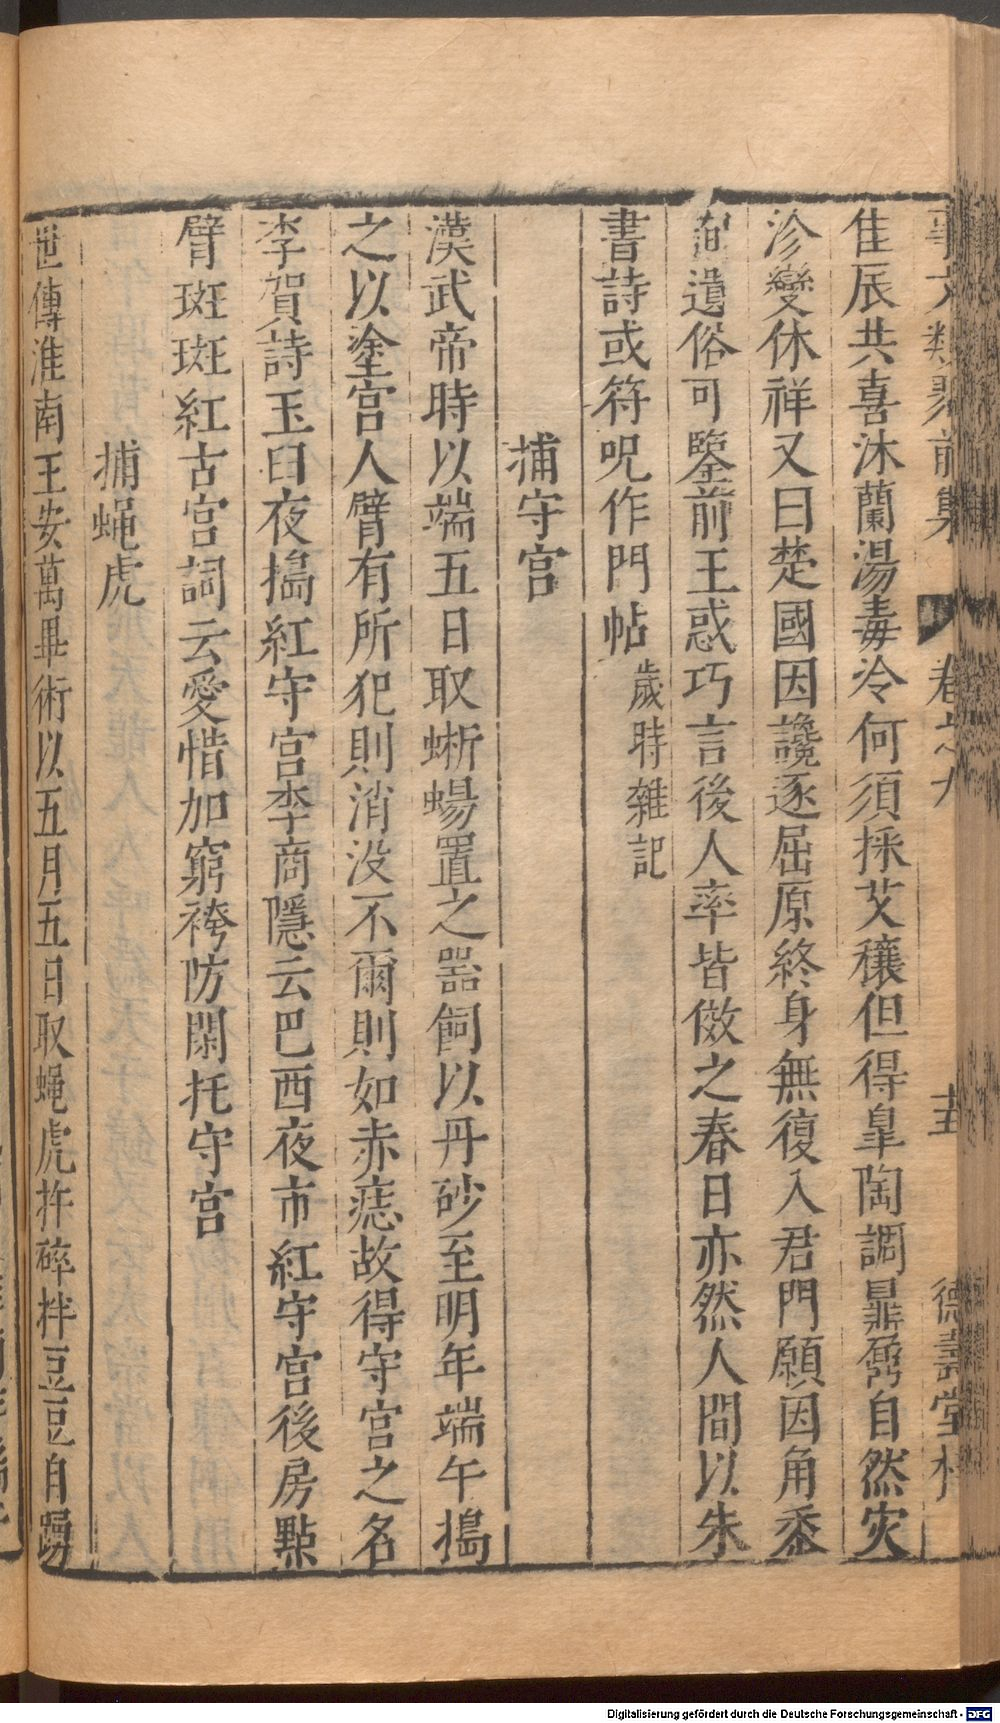 事文類聚前集 卷之九 德壽堂梓
隹辰共喜沐蘭湯毒冷何須採艾穰但得臯陶調鼎鼐自然灾
沴變休祥又曰楚國因讒逐屈原終身無復入君門願因角黍
詢遺俗可鑒前王惑巧言後人率皆倣之春日亦然人間以朱
書詩或符呪作門帖歲時雜記
捕守宮
漢武帝時以端五日取蜥蜴置之器飼以丹砂至明年端午搗
之以塗宮人臂有所犯則消没不爾則如赤痣故得守宮之名
李賀詩玉臼夜搗紅守宮李商隱云巴西夜市紅守宮後房點
臂斑斑紅古宮詞云愛惜加窮袴防閑托守宮
捕蝇虎
世傳淮南王安萬畢術以五月五日取蝇虎杵碎拌豆豆自踴
Digitalisierung gefördert durch die Deutsche Forschungsgemeinschaft - DFG